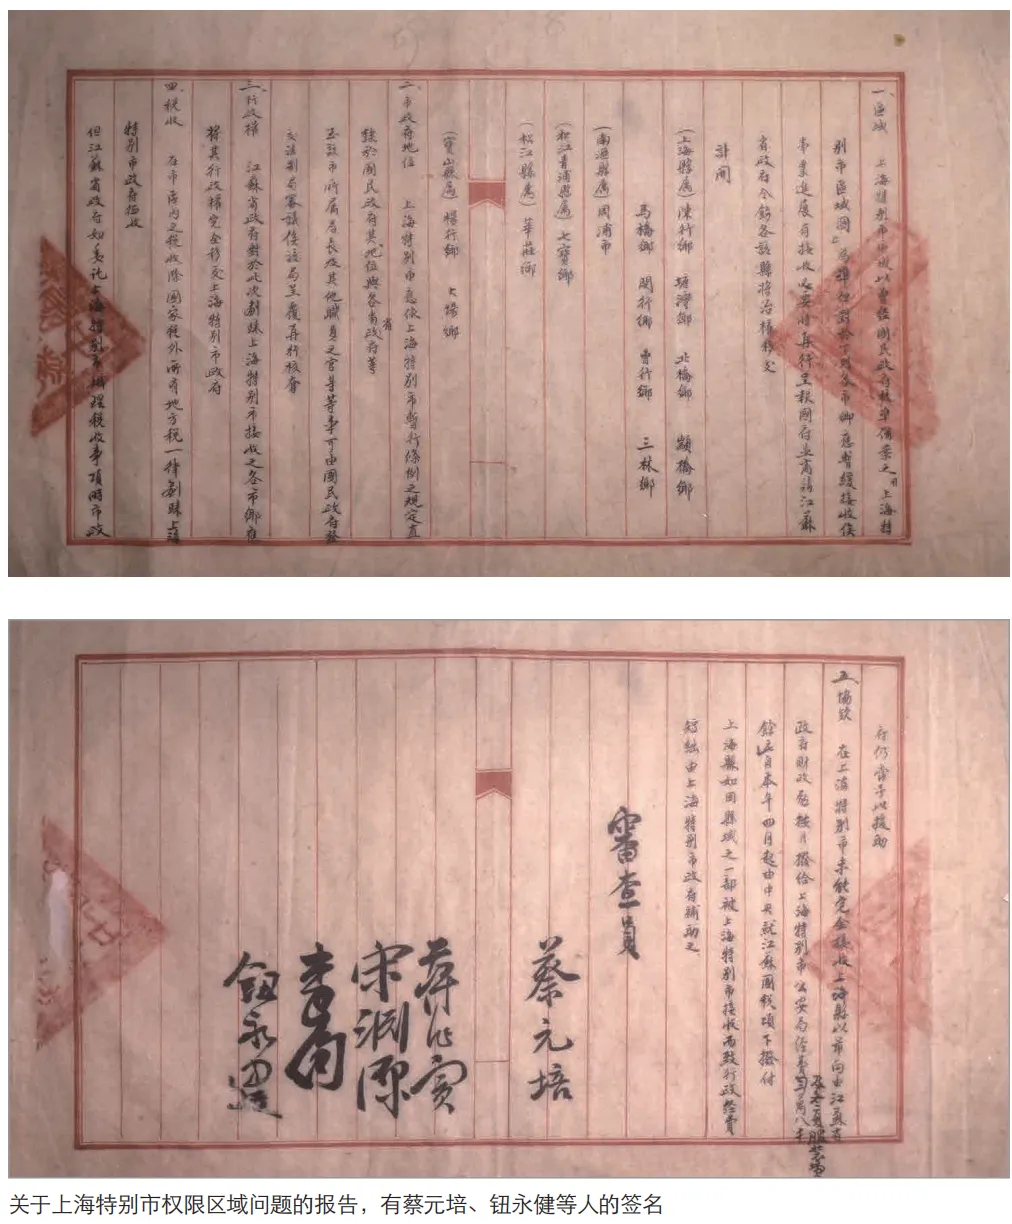 一、區域　上海特別市區域以曾經國民政府核準備案之上海特
別市區域圖上為準但對於下列各市鄉應暫緩接收俟
事業進展有接收必要時再行呈報國府並商請江蘇
省政府令飭各該縣將治權移交
計開
(上海縣屬)陳行鄉　塘灣鄉　北橋鄉　顓橋鄉
馬橋鄉　閔行鄉　曹行鄉　三林鄉
(南滙縣屬)周浦市
(松江青浦縣屬)七寶鄉
(松江縣屬)莘莊鄉
(寶山縣屬)楊行鄉　大場鄉
二、市政府地位　上海特別市應依上海特別市暫行條例之規定直
隸於國民政府其地位與各省政府等
至該市所屬局長及其他職員之官等等事可由國民政府發
交法制局審議俟該局呈覆再行核奪
三、行政權　江蘇省政府對於此次劃歸上海特別市接收之各市鄉應
將其行政權完全移交上海特別市政府
四、稅收　在市區內之稅收除國家稅外所有地方稅一律劃歸上海
特別市政府徵收
但江蘇省政府如委託上海特別市辦理稅收事項時市政
府仍當予以援助
五、協欵　在上海特別市未能完全接收上海縣以前向由江蘇省
政府財政廳按月撥給上海特別市公安局經費四萬八千
餘元自本年四月起由中央就江蘇國稅項下撥付
上海縣如因縣域之一部被上海特別市接收而致行政經費
短絀由上海特別市政府補助之
審查員
蔡元培
蔣作賓
宋淵源
鈕永建
关于上海特别市权限区域问题的报告，有蔡元培、钮永健等人的签名